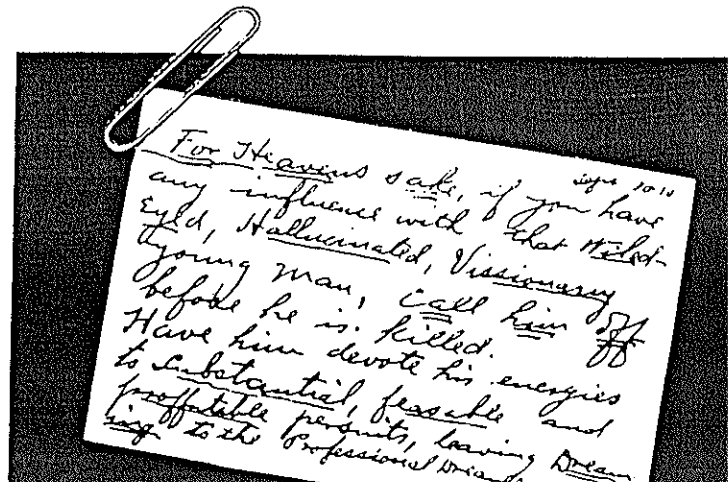 Sept 1910
For Heavens sake, if you have
any influence with that Wiled-
Eyed, Hallucinated, Vissionary
young man, call him off
before he is killed.
Have him devote his energies
to substantial, feasable and
proffatable persuits, leaving Dream
ing to the Professional